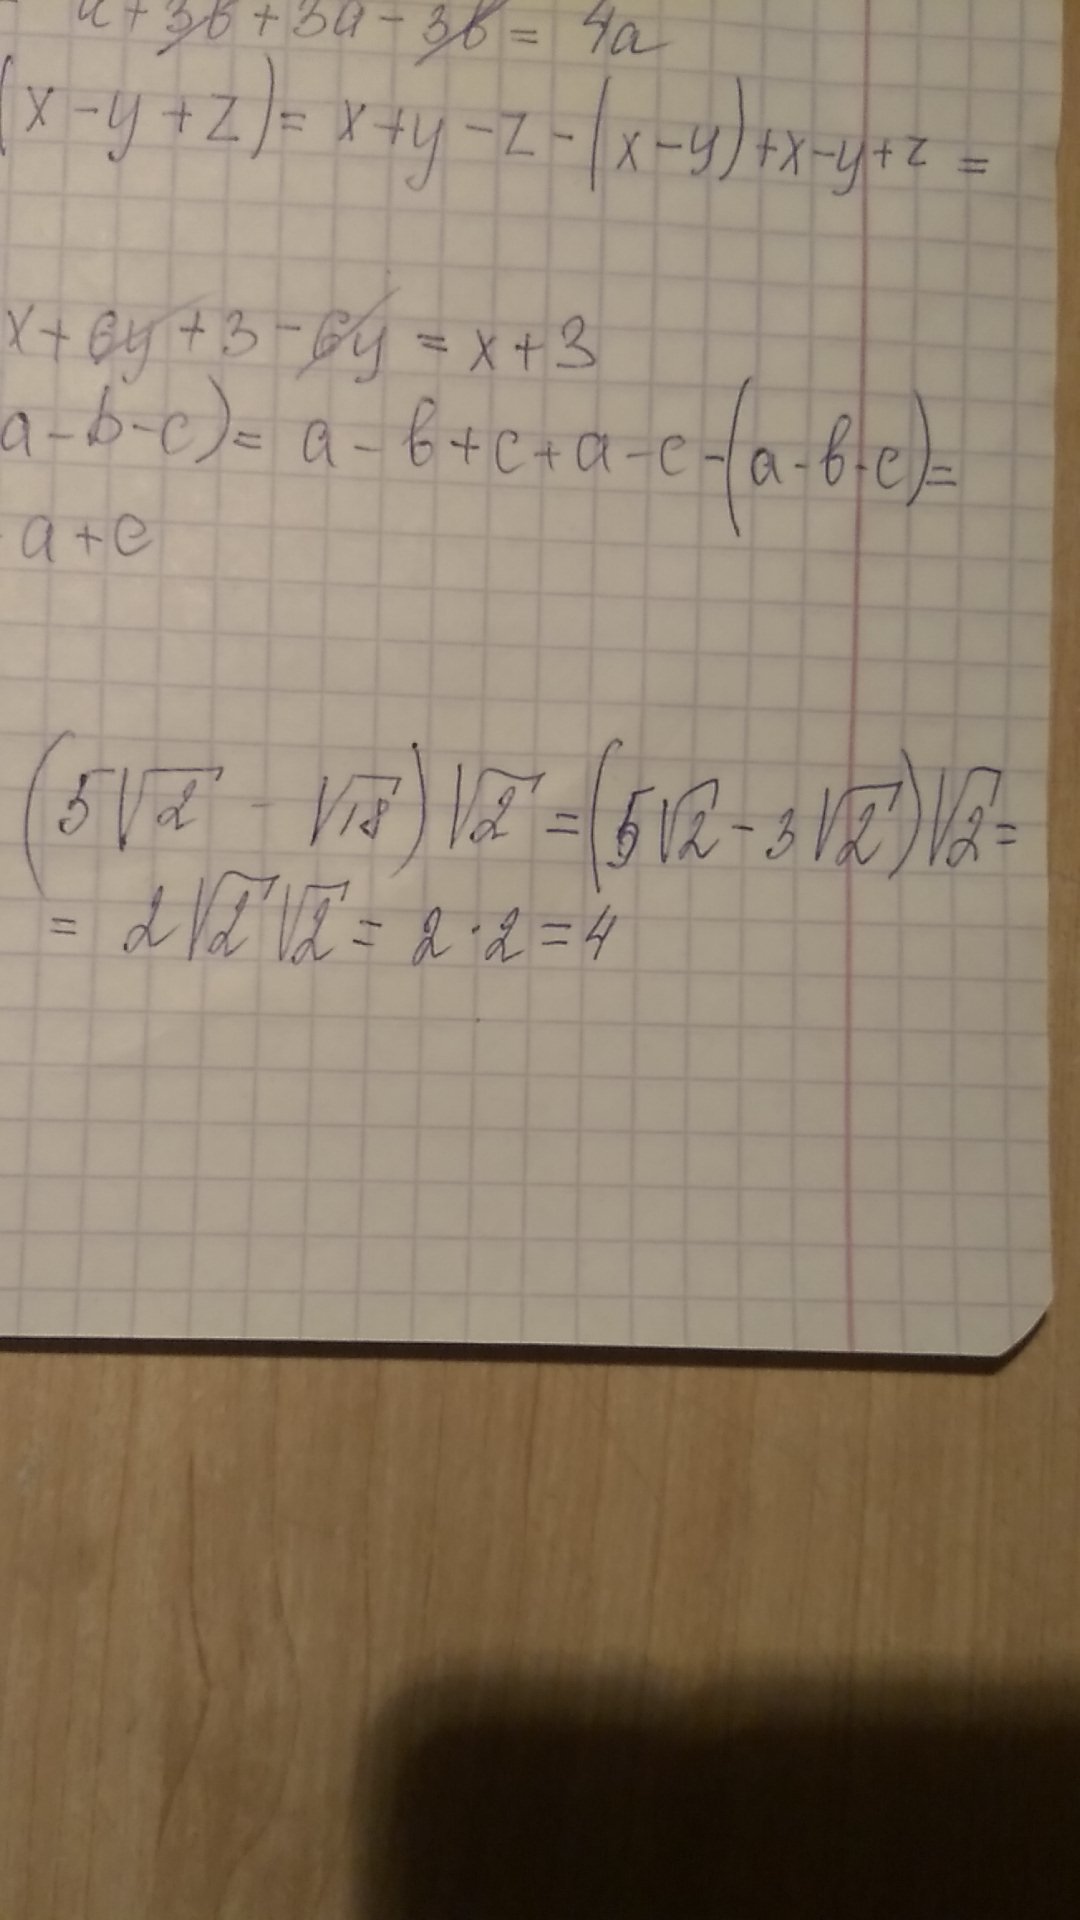 a + 3b + 3a - 3b = 4a
(x - y + z) = x + y - z - (x - y) + x - y + z =
x + 6y + 3 - 6y = x + 3
a - b - c) = a - b + c + a - c - (a - b - c) =
a + c
(5√2 - √18)√2 = (5√2 - 3√2)√2 =
= 2√2√2 = 2 · 2 = 4